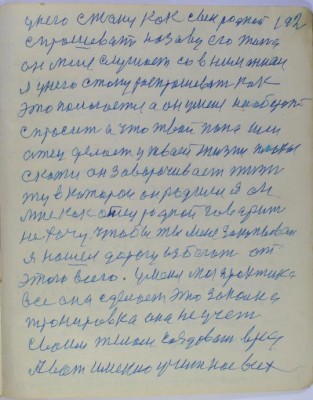 у него стану как свекродной 192
спрошевать назову его папа
он меня слушает со вниманием
я у него стану роспрошевать как
это пологается а он у меня наоборот
спросит а что твой папа или
отец делает у твает жизни
скажи он заворачивает жизнь
ту в которой он родился я он
мне как отец родной говорит
не хочу чтобы ты меня
я нашел дорогу избегать от
этого всего. у меня моя практика
все она сделает это закалка
тронировка она не учат
своим телом создовать вред
А вот именно учит на всех